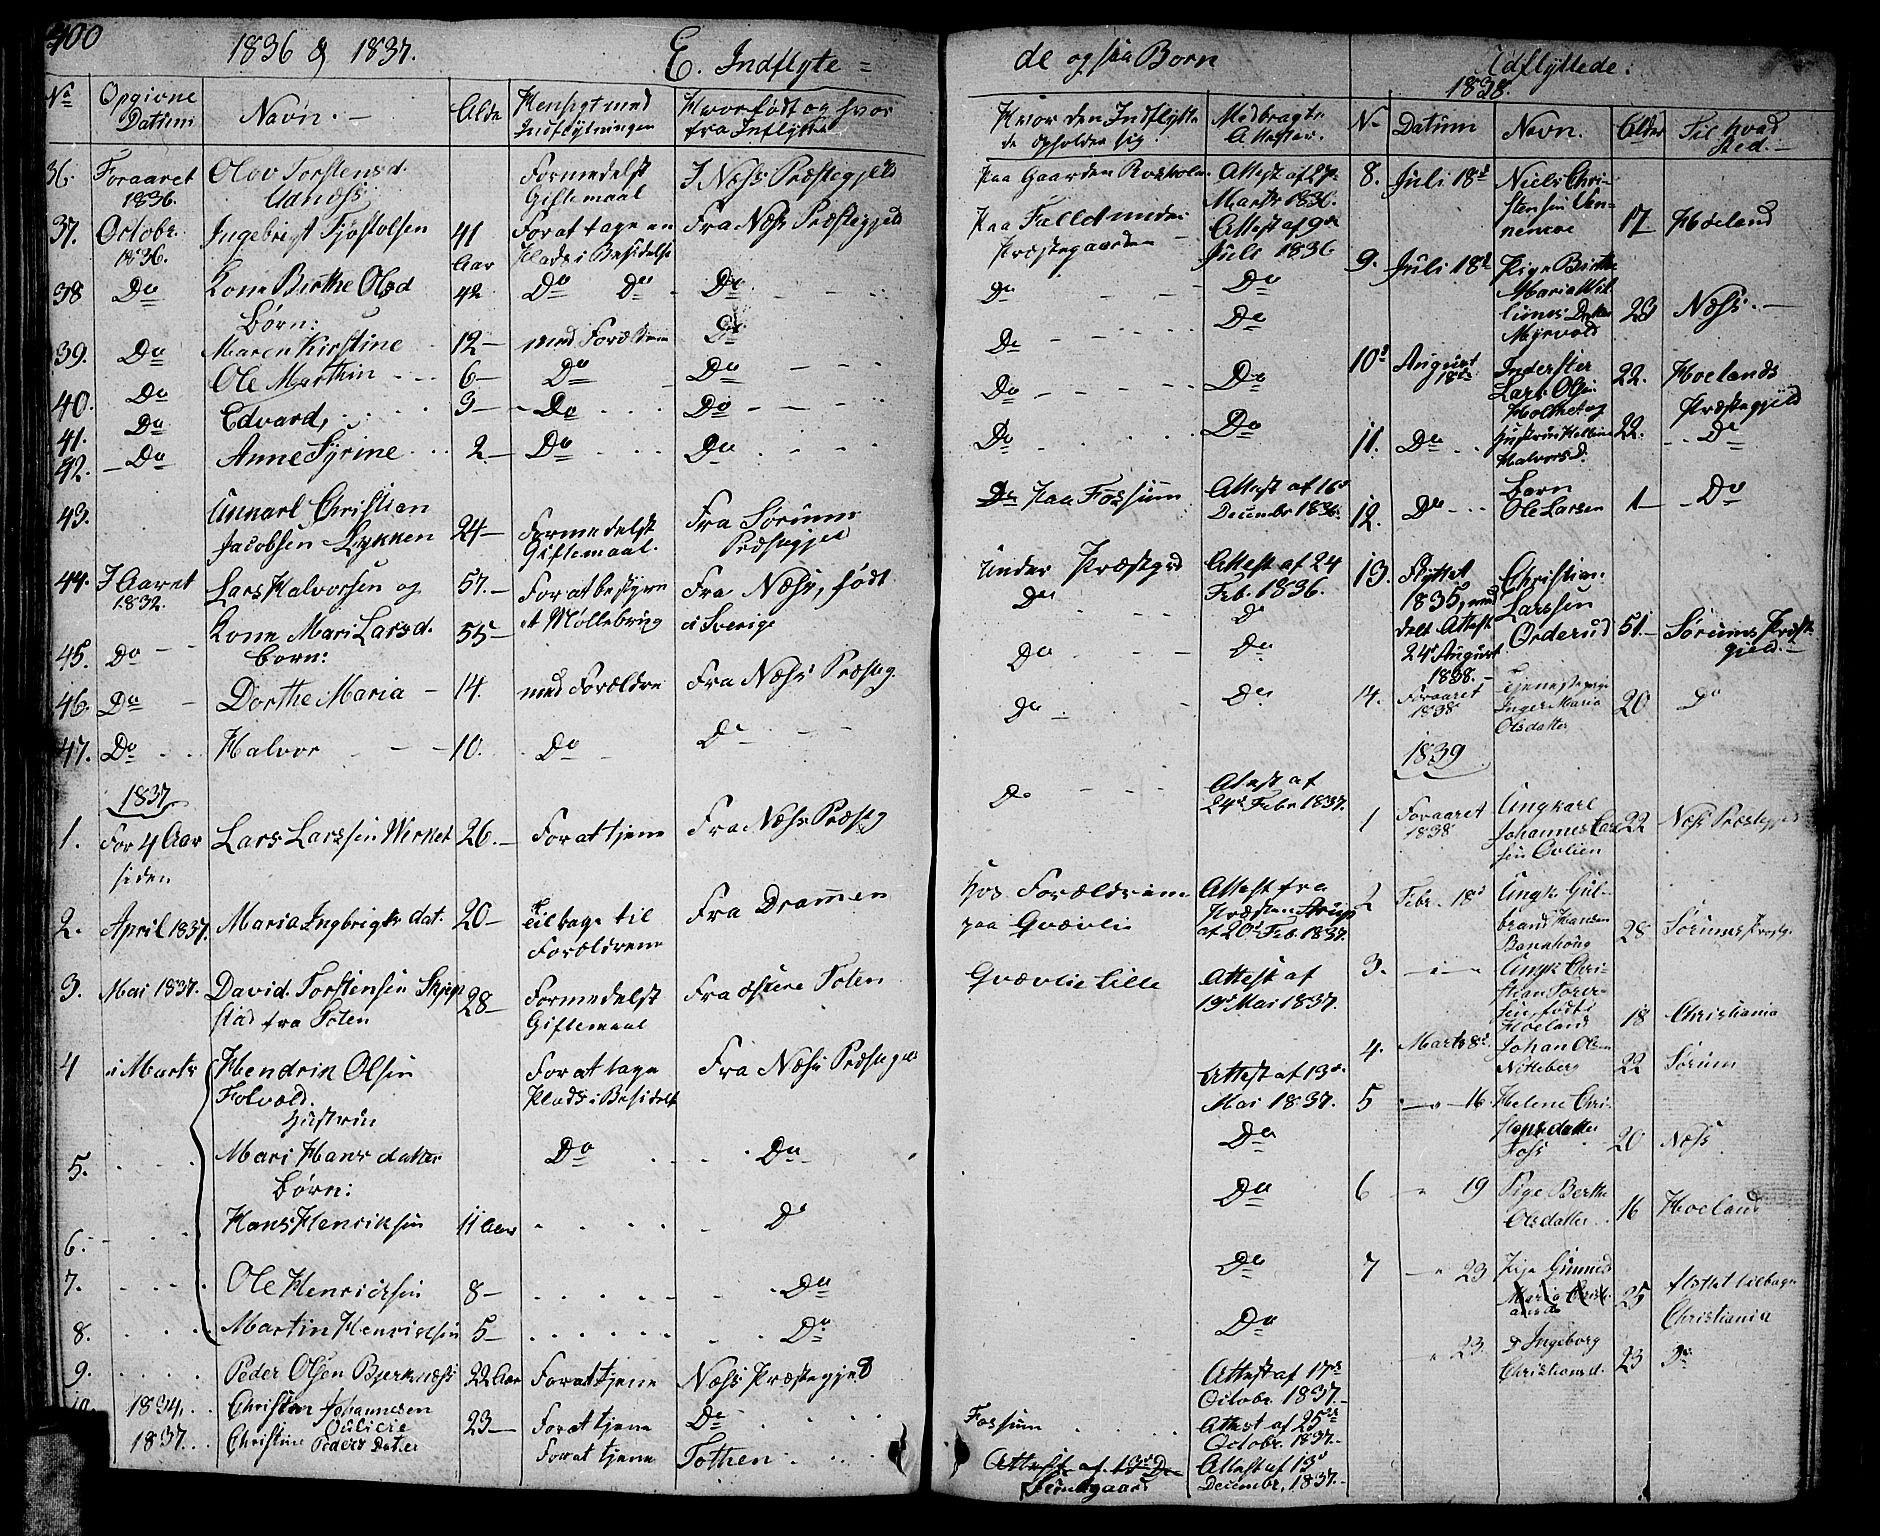 400
1836 & 1837.
E. Indflytte=
No
Opgivne Datum
Navn.
Alder
Hensigt med Indflytningen
Hvor født og hvor fra Inflytte
36. Foraaret 1836. Olov Torstensd. Udnæss Formedelst Giftemaal I Næss Præstegjeld
37. Octobr. 1836. Ingebrigt Tjøstolsen 41 Aar For at tage en Plads i Besidelse Fra Næss Præstegjeld
38 Do Kone Birthe Olsd 42 Do Do Do
Børn:
39. Do Maren Kirstine 12 med Forældrene Do
40. Do Ole Marthin 6 Do Do
41. Do Edvard, 3 Do Do
42. Do Anne Syrine 2 Do Do
43. Unkarl Christian Jacobsen Lykken 24 Formedelst Giftemaal. Fra Sørums Præstegjeld
44. I Aaret 1832. Lars Halvorsen og 57. For at bestyre et Møllebrug Fra Næss, født i Sverige
45. Do Kone Mari Larsd. 55
børn:
46. Do Dorthe Maria 14. med Forældre Fra Næss Præsteg.
47. Do Halvor 10. Do Do
1837
1. For 4 Aar siden Lars Larssen Werket 26. For at tjene Fra Næss Præsteg
2. April 1837. Maria Ingbrigts dat. 20 Tilbage til Forældrene Fra Drammen
3. Mai 1837. David Torstensen Skjep stad fra Toten 28 Formedelst Giftemaal Fra østere Toten
4 i Marts Hendrik Olsen Folvald. For at tage Plads i Besidelse Fra Næss Præstegjeld
Hustrue
5. Mari Hans datter Do Do
børn:
6. Hans Henriksen 11 Aar Do
7. Ole Henricksen 8 Do
8. Martin Henricksen 5 Do
9. Peder Olsen Bjerknæss 22 Aar For at tjene Næss Præstegjeld
10. 1834. Christian Johannesen 23 For at tjene Do
1837. Christine Peders Datter For at tjene Tothen
de ogsaa Børn
Hvor den Indflytte de opholder sig
Medbragte Attester.
Paa Gaarden Rosholm Attest af 27 Marts 1836.
Paa Falldt under Præstegaarden Attest af 9de Juli 1836
Do Do
Do Do
Do Do
Do Do
Do Paa Fossum Attest af 16de Decembr 1836.
Under Præstgrd Attest af 24 Feb. 1836.
Do Do
Do Do
Do Do
Do Attest af 24de Febr 1837.
Hos Forældrene paa Gvævli Attest fra Præsten Strup af 20de Feb 1837.
Gvævlie lille Attest af 19de Mai 1837.
Attest af 13de Mai 1837.
Do
Do
Do
Do
Attest af 17de Octobr. 1837.
Fossum Attest af 25de Octobr. 1837.
Attest af 13de De Attest af 13de Decembr. 1837.
Udflyttede:
1838.
No Datum Navn. Alder Til hvad Sted.
8. Juli 18de Niels Christensen 17 Høeland
9. Juli 18de Pige Birthe Maria Datter Myrvold 23 Næss.
10de August 18de Inderster Lars Olsen Holthet og 22. Høelands Præstegjeld
11. Do hustrue Halvorsd. 22. Do
12. Do Barn Ole Larsen 1 Do
13. Flyttet 1835, meddelt Attest 24de August 1838. Christian Larssen Orderud 51. Sørums Præst gjeld.
14. Foraaret 1838 Tjenestepige Inger Maria Olsdatter 20 Do
1839
1 Foraaret 1838 Ungkarl Johannes Larssen Evlien 22 Næss Præstegjeld
2 Febr. 18de Ungk. Gulbrand Hansen Bannhoug 28 Sørums Præstg.
3. Ungk. Christian født i Høeland 18 Christiania
4. Marts 8de Johan Olsen Nitteberg 22 Sørum
5 16 Helene Christophsdatter Foss 20 Næss
6 19 Pige Berthe Olsdatter 16 Høeland
7 23 Pige Gunnild 25 flyttet tilbage Christiania
23. Ingeborg Christiansd. 23 Do